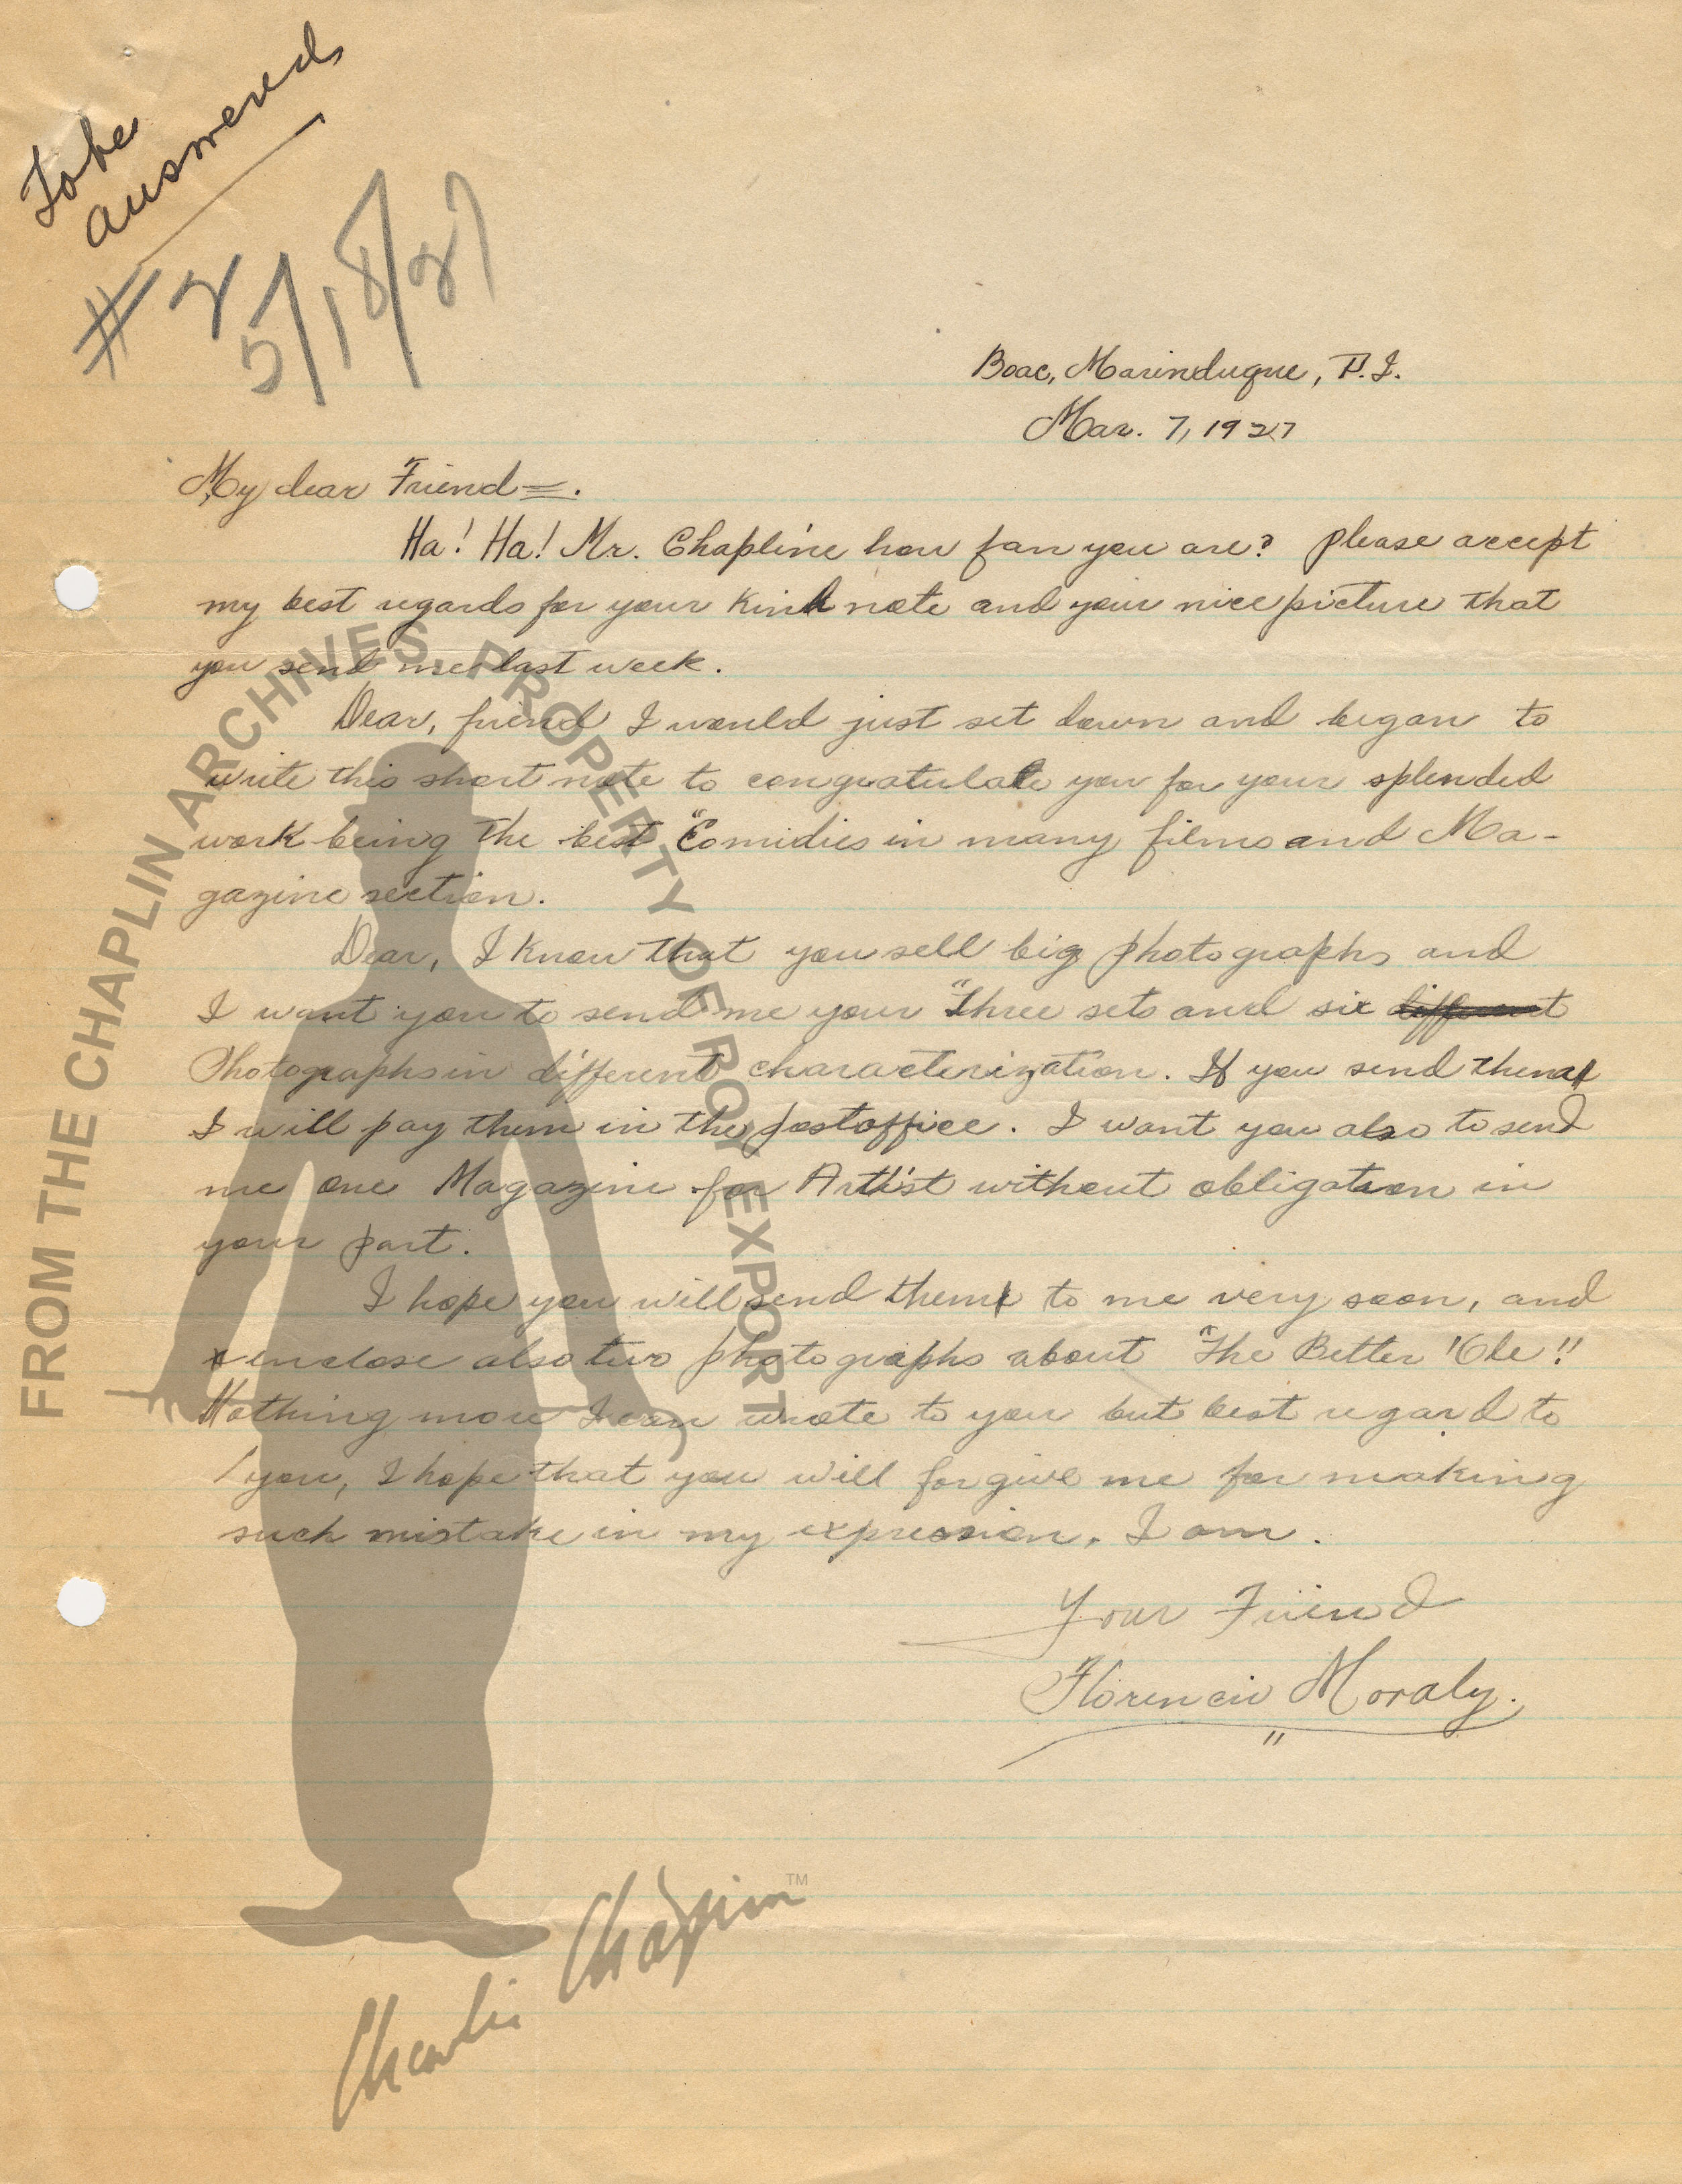 To be
answered
#2
5/18/27
Boac, Marinduque, P.I.
Mar. 7, 1927
My dear Friend=.
Ha! Ha! Mr. Chapline how fan you are? please accept
my best regards for your kind note and your nice picture that
you send me last week.
Dear, friend I would just set down and began to
write this short note to congratulate you for your splended
work being the best "Comidies in many films and Ma-
gazine section.
Dear, I know that you sell big photographs and
I want you to send me your "three sets and six different
Photographs in different characterization. If you send them
I will pay them in the postoffice. I want you also to send
me one Magazine for Artist without obligation in
your part.
I hope you will send them to me very soon, and
enclose also two photographs about "The Better 'Ole!!
Nothing more I can wrote to you but best regard to
you, I hope that you will forgive me for making
such mistake in my expression. I am.
Your Friend
Florencio Moraly.
FROM THE CHAPLIN ARCHIVES PROPERTY OF ROY EXPORT
Charlie Chaplin ™